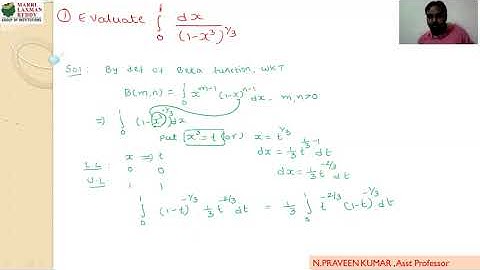 MARRI LAXMAN REDDY
GROUP OF INSTITUTIONS
① Evaluate ∫₀¹ dx / (1-x³)^(1/3)
Sol: By def of Beta function, WKT
B(m,n) = ∫₀¹ x^(m-1) (1-x)^(n-1) dx, m,n>0
⇒ ∫₀¹ (1-x³)^(-1/3) dx
Put x³ = t (or) x = t^(1/3)
dx = 1/3 t^(1/3 -1) dt
dx = 1/3 t^(-2/3) dt
x ⇒ t
L.L: 0 0
U.L: 1 1
∫₀¹ (1-t)^(-1/3) 1/3 t^(-2/3) dt = 1/3 ∫ t^(-2/3) (1-t)^(-1/3) dt
N.PRAVEEN KUMAR ,Asst Professor